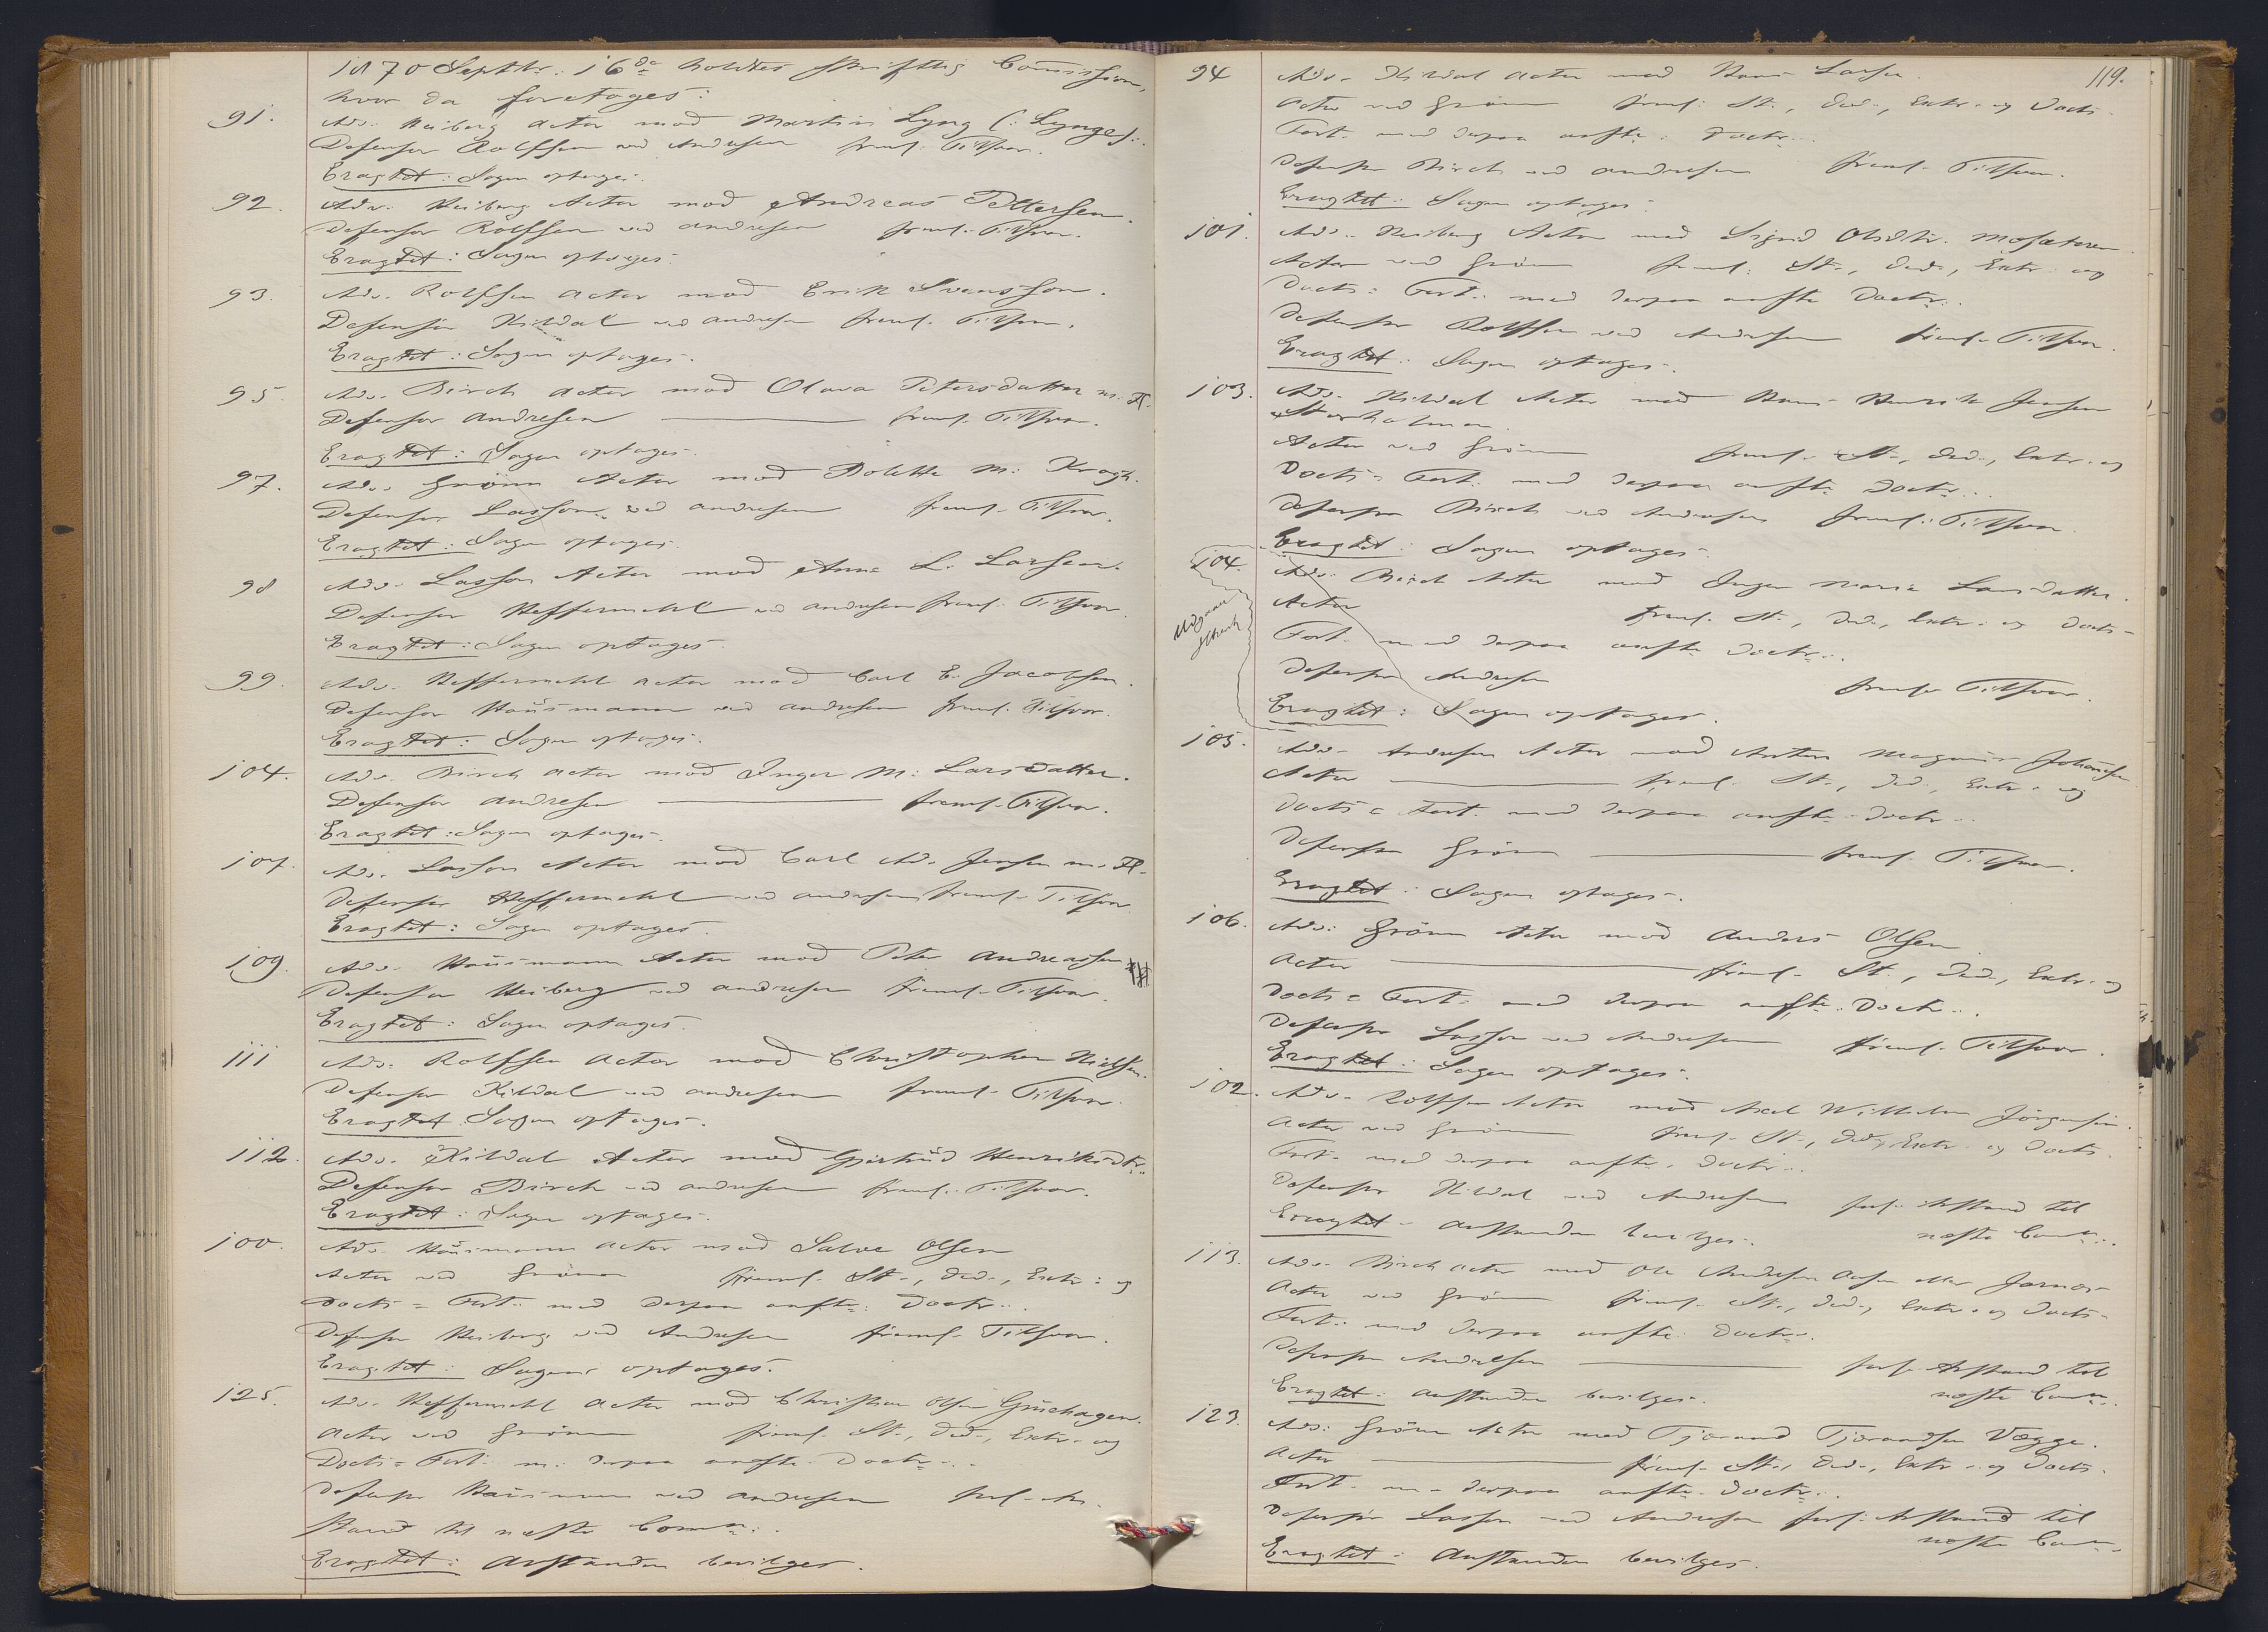 1870 Septbr: 16de holdtes skriftlig Commission,
hvor da foretages:
91. Adv. Heiberg Actor mod Martin Lyng (: Lynge):
Defensor Rolfsen ved Andresen freml. Tilsvar.
Eragtet: Sagen optages.
92. Adv. Heiberg Actor mod Andreas Pettersen.
Defensor Rolfsen ved Andresen freml. Tilsvar.
Eragtet: Sagen optages.
93. Adv. Rolfsen Actor mod Erik Svensson.
Defensor Kildal ved Andresen freml. Tilsvar.
Eragtet: Sagen optages.
95. Adv. Birch Actor mod Olava Petersdatter m. Fl.
Defensor Andresen freml. Tilsvar.
Eragtet: Sagen optages.
97. Adv. Grönn Actor mod Bolette M: Krogh.
Defensor Lasson ved Andresen freml. Tilsvar.
Eragtet: Sagen optages.
98 Adv. Lasson Actor mod Anne L. Larsen.
Defensor Heffermehl ved Andresen freml. Tilsvar.
Eragtet: Sagen optages.
99. Adv. Heffermehl Actor mod Carl E. Jacobsen.
Defensor Hausmann ved Andresen freml. Tilsvar.
Eragtet: Sagen optages.
104. Adv. Birch Actor mod Inger M: Larsdatter.
Defensor Andresen freml. Tilsvar.
Eragtet: Sagen optages.
107. Adv. Lasson Actor mod Carl Ad. Jensen m. Fl.
Defensor Heffermehl ved Andresen freml. Tilsvar
Eragtet: Sagen optages.
109. Adv. Hausmann Actor mod Peter Andreassen
Defensor Heiberg ved Andresen freml. Tilsvar.
Eragtet: Sagen optages.
111 Adv. Rolfsen Actor mod Christopher Nielsen.
Defensor Kildal ved Andresen freml. Tilsvar.
Eragtet: Sagen optages.
112. Adv. Kildal Actor mod Gjertrud Henriksdtr.
Defensor Birch ved Andresen freml. Tilsvar.
Eragtet: Sagen optages.
100. Adv. Hausmann Actor mod Salve Olsen
Actor ved Grönn freml. St., Ded., Extr. og
Docts = Fort. med derpaa anfte. Doctr..
Defensor Heiberg ved Andresen freml. Tilsvar.
Eragtet: Sagen optages.
125. Adv. Heffermehl Actor mod Christian Olsen Gruehagen.
Actor ved Grönn freml. St., Ded., Extr. og
Docts = Fort. m. derpaa anfte. Doctr..
Defensor Hausmann ved Andresen forl. An-
stand til næste Comn..
Eragtet: Anstanden bevilges.
119.
94 Adv. Kildal Actor mod Hans Larsen
Actor ved Grönn freml. St., Ded., Extr. og Docts-
Fort. med derpaa anfte. Doctr..
Defensor Birch ved Andresen freml. Tilsvar.
Eragtet: Sagen optages.
101. Adv. Heiberg Actor mod Sigrid Olsdtr.
Actor ved Grönn freml. St., Ded., Extr. og
Docts = Fort. med derpaa anfte Doctr..
Defensor Rolfsen ved Andresen freml. Tilsvar.
Eragtet: Sagen optages.
103. Adv. Kildal Actor mod Hans Henrik Jensen
Storholmen
Actor ved Grönn freml. St., Ded., Extr. og
Docts = Fort. med derpaa anfte. Doctr..
Defensor Birch ved Andresen freml. Tilsvar
Eragtet: Sagen optages.
104. Adv. Birch Actor mod Inger Maria Larsdatter.
Actor freml. St., Ded., Extr. og Docts-
Fort. med derpaa anfte. Doctr..
Defensor Andresen freml. Tilsvar.
Eragtet: Sagen optages.
105. Adv. Andresen Actor mod Anton Magnus Johansen
Actor freml. St., Ded., Extr. og
Docts = Fort. med derpaa anfte. Doctr..
Defensor Grönn freml. Tilsvar.
Eragtet: Sagen optages.
106. Adv. Grönn Actor mod Anders Olsen
Actor freml. St., Ded., Extr. og
Docts = Fort. med derpaa anfte. Doctr..
Defensor Lasson ved Andresen freml. Tilsvar.
Eragtet: Sagen optages.
102. Adv. Rolfsen Actor mod Axel Wilhelm Jörgensen.
Actor ved Grönn freml. St., Ded., Extr. og Docts.
Fort. med derpaa anfte. Doctr..
Defensor Kildal ved Andresen forl. Anstand til
næste Comn..
Eragtet: Anstanden bevilges.
113. Adv. Birch Actor mod Ole Andresen eller
Actor ved Grönn freml. St., Ded., Extr. og Docts-
Fort. med derpaa anfte. Doctr..
Defensor Andresen forl. Anstand til
næste Comn..
Eragtet: Anstanden bevilges.
123. Adv. Grönn Actor mod Tjerand Tjerandsen Vægge.
Actor freml. St., Ded., Extr. og Docts.
Fort. m. derpaa anfte. Doctr..
Defensor Lasson ved Andresen forl. Anstand til
næste Comn.
Eragtet: Anstanden bevilges.